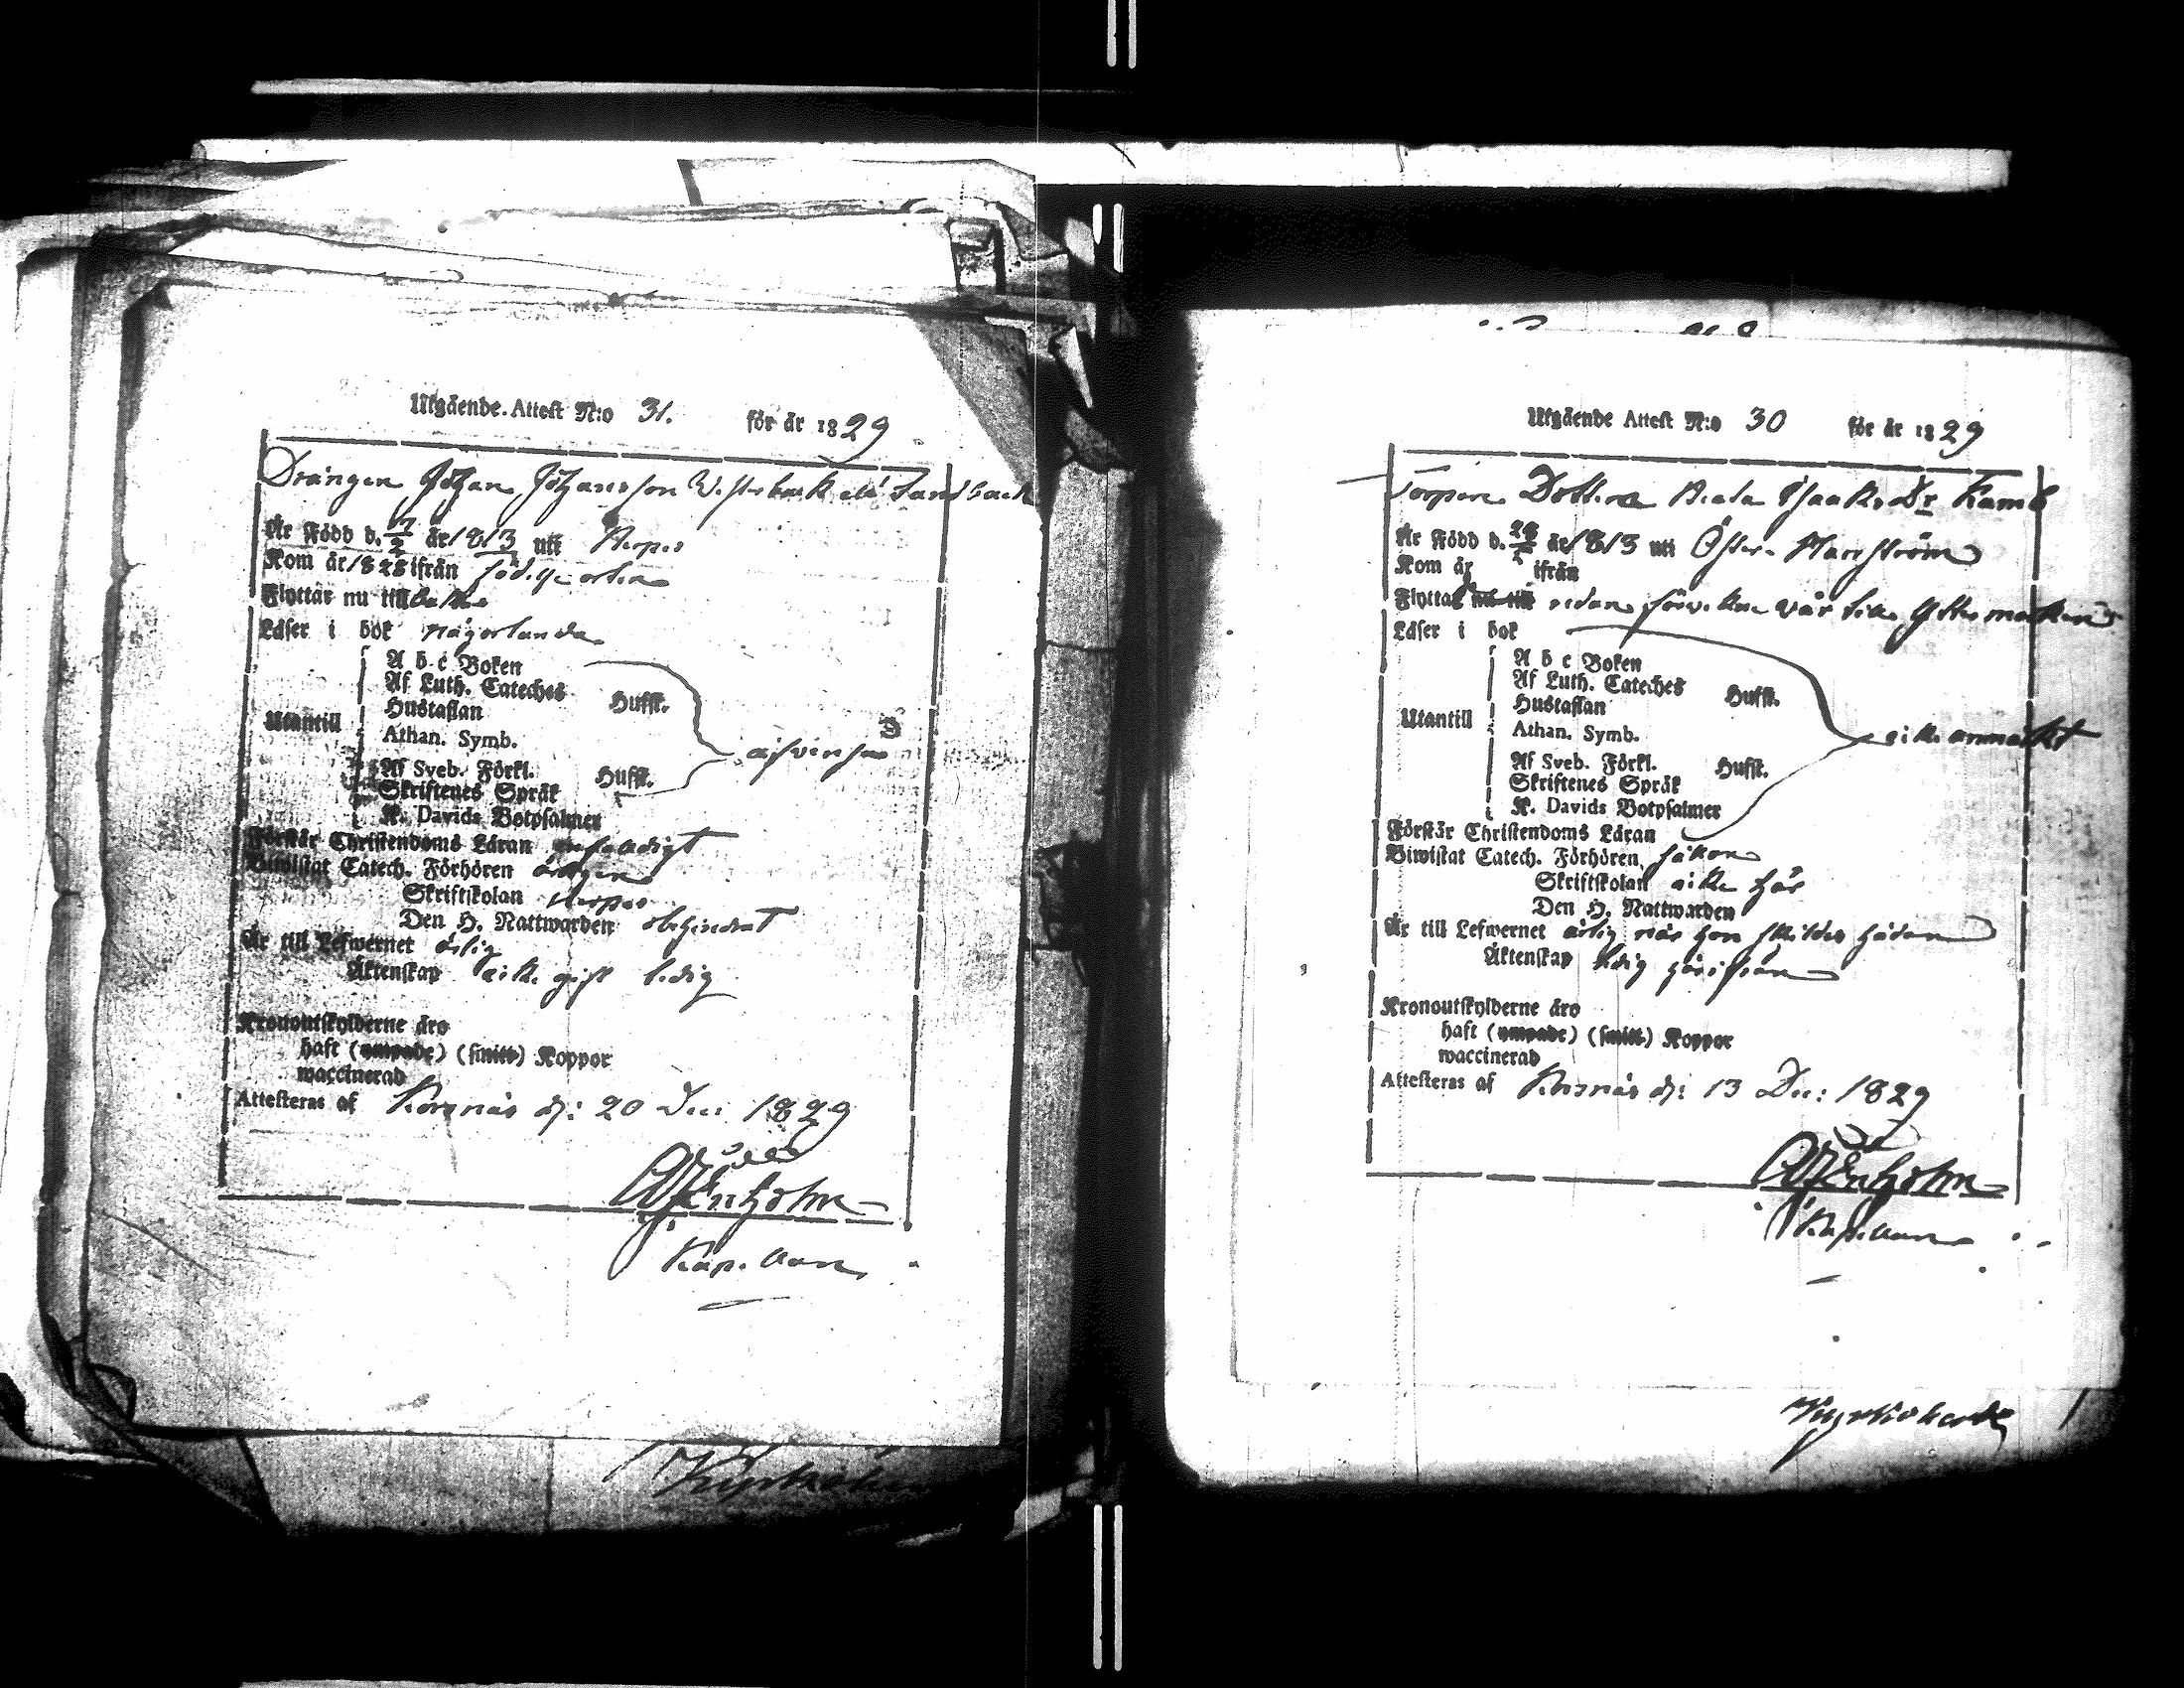 Utgående Attest N:o 31. för år 1829
Drängen Johan Johansson Westerback ell. Sandback
Är Född d. 7/2 år 1813 uti Korpo
Kom år 1828 ifrån födelse orten
Flyttar nu till baka
Läser i bok någorlunda
Utantill
A b c Boken
Af Luth. Cateches Hussk.
Hustaflan
Athan. Symb.
Af Sveb. Förkl. Hussk.
Skriftenes Språk
K. Davids Botpsalmer
Förstår Christendoms Läran enfaldigt
Biwistat Catech. Förhören
Skriftskolan
Den H. Nattwarden obehindrat
Är till Lefwernet ärlig
Äktenskap icke gift ledig
Kronoutskylderne äro
haft (ympade) (smitt) Koppor
waccinerad
Attesteras af Korsnäs d: 20 Dec: 1829
Enholm
Kapellan
Utgående Attest N:o 30 för år 1829
Torpare Dottren Isaaks Dr Kamb
Är Född d. 28 år 1813 uti Öster
Kom år ifrån
Flyttat nu till redan
Läser i bok
Utantill
A b c Boken
Af Luth. Cateches Hussk.
Hustaflan
Athan. Symb. icke anmärkt
Af Sveb. Förkl. Hussk.
Skriftenes Språk
K. Davids Botpsalmer
Förstår Christendoms Läran
Biwistat Catech. Förhören
Skriftskolan icke här
Den H. Nattwarden
Är till Lefwernet ärlig när hon skildes hädan
Äktenskap ledig härifrån
Kronoutskylderne äro
haft (ympade) (smitt) Koppor
waccinerad
Attesteras af Korsnäs d: 13 Dec: 1829
Enholm
Kapellan